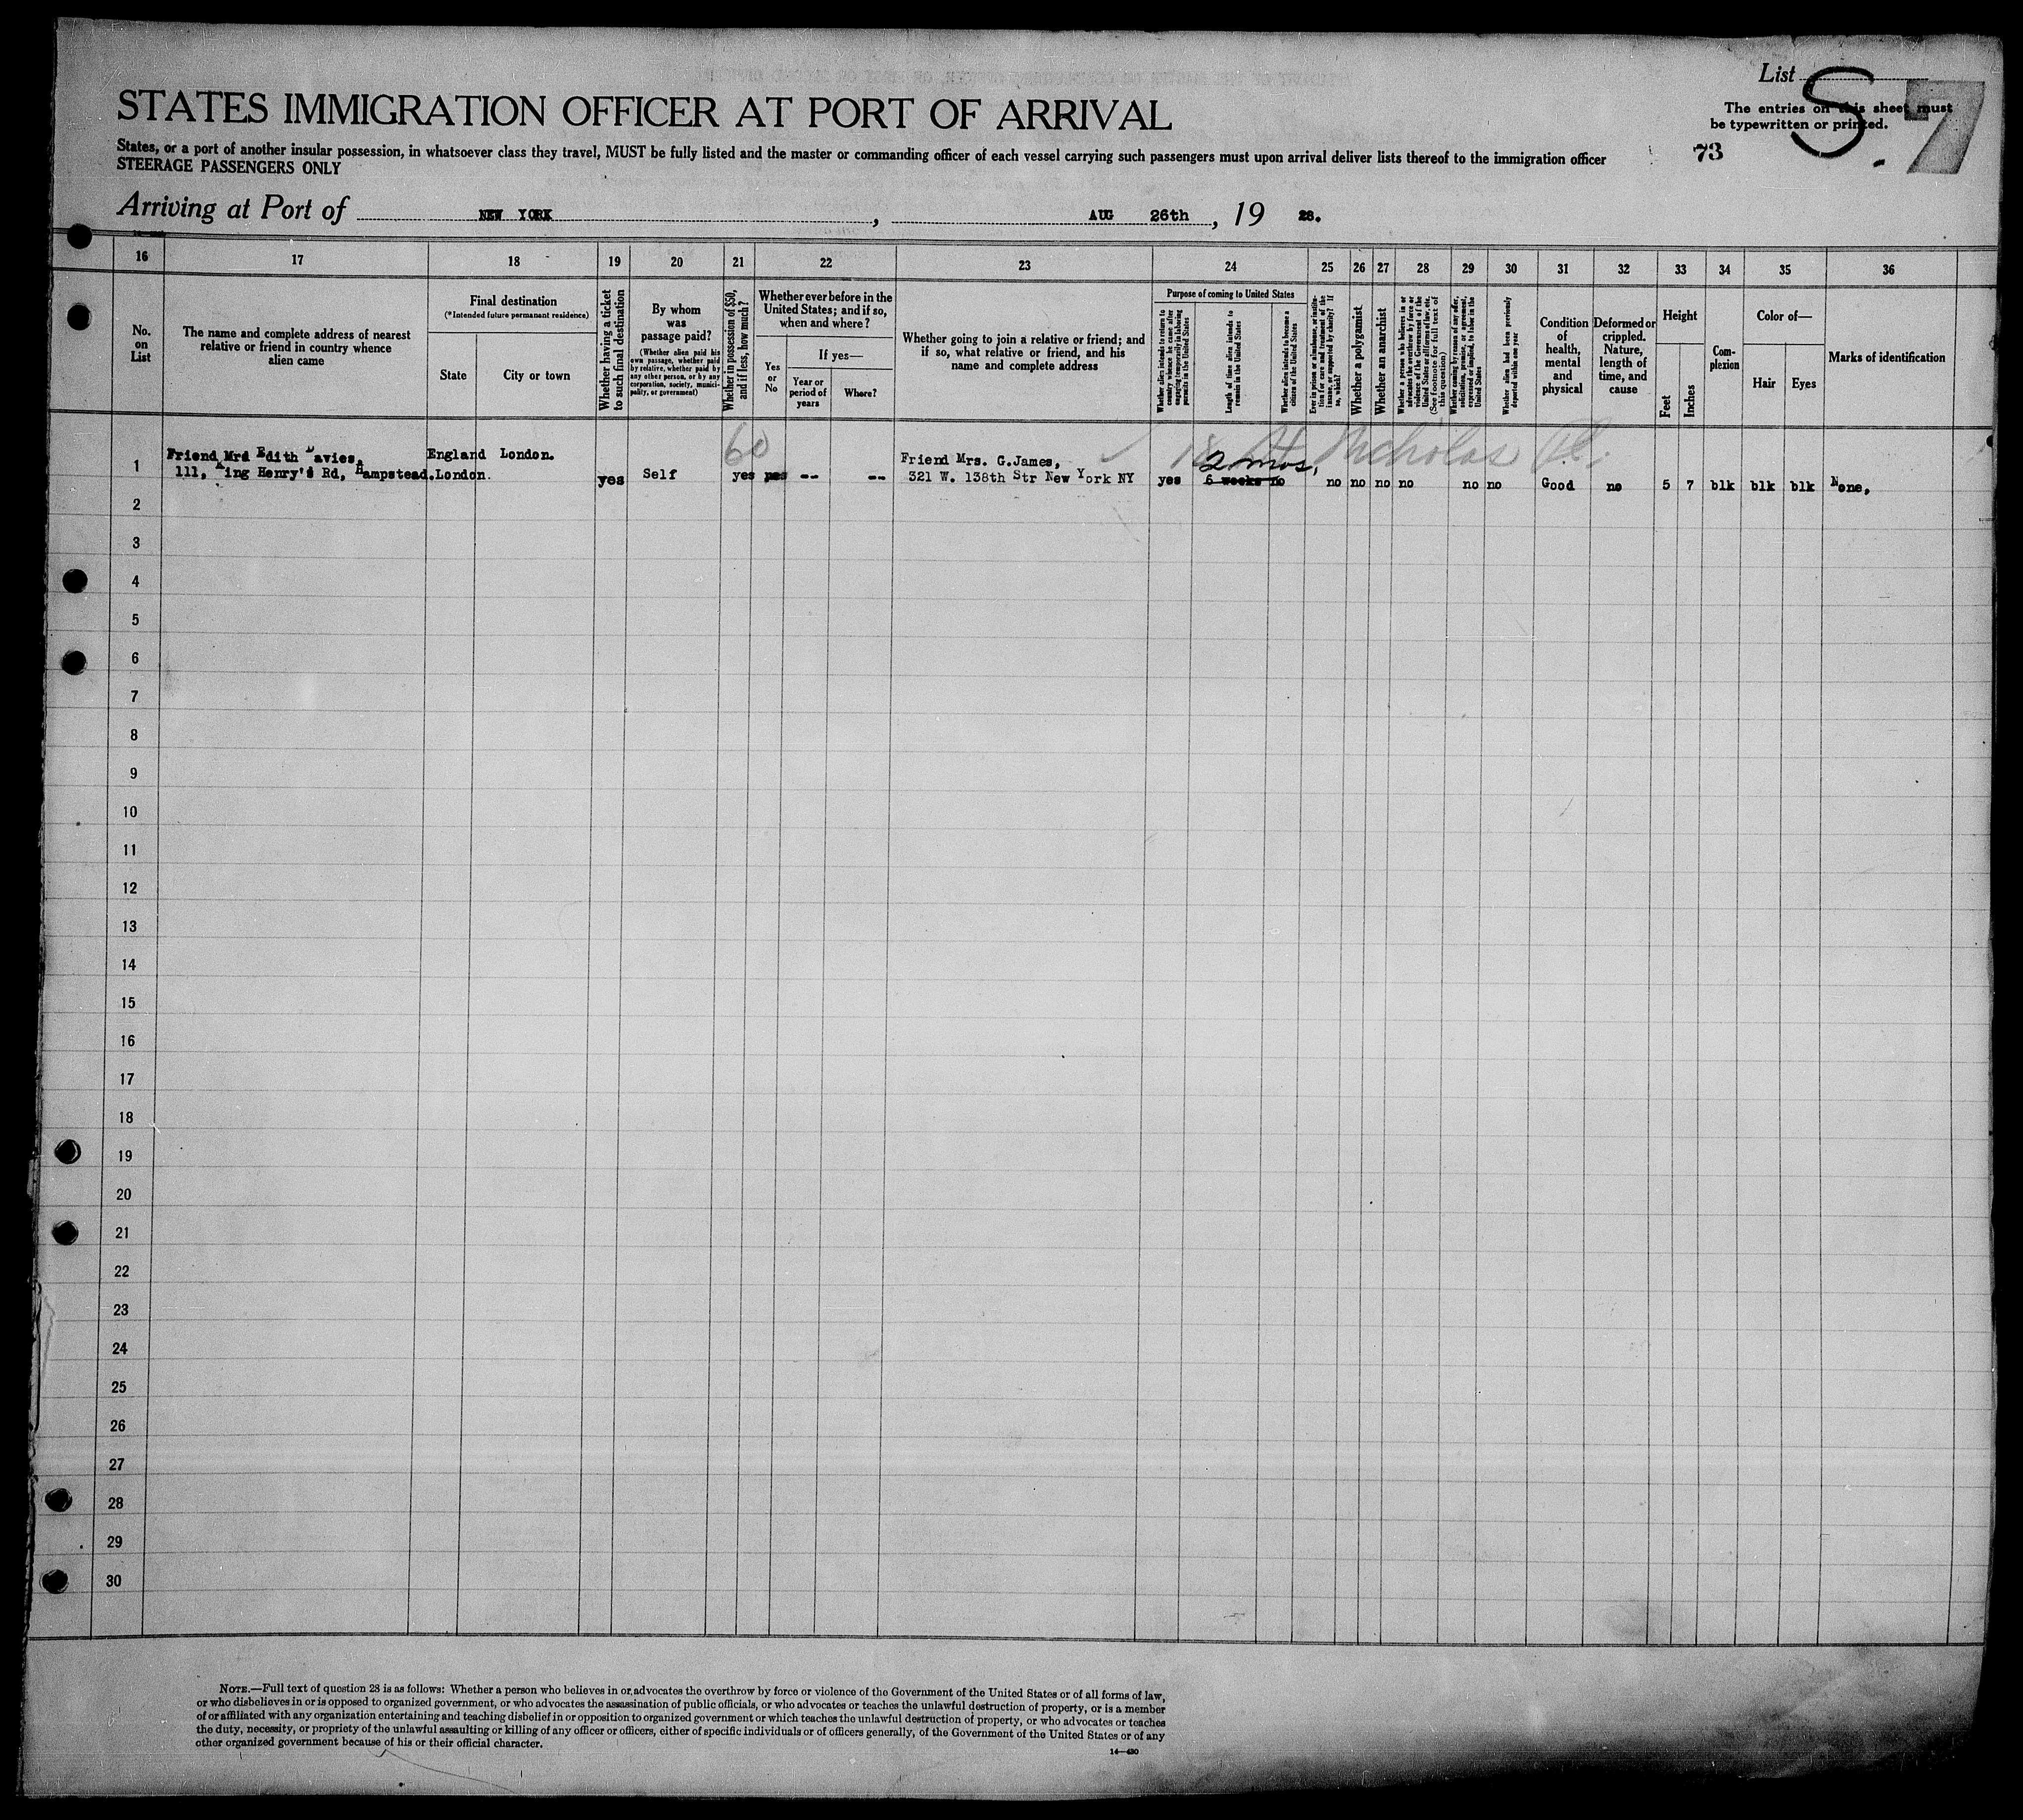 List
S. 7
STATES IMMIGRATION OFFICER AT PORT OF ARRIVAL
The entries on this sheet must
be typewritten or printed.
States, or a port of another insular possession, in whatsoever class they travel, MUST be fully listed and the master or commanding officer of each vessel carrying such passengers must upon arrival deliver lists thereof to the immigration officer
STEERAGE PASSENGERS ONLY
73
Arriving at Port of NEW YORK, AUG 26th, 19 28.
16 17 18 19 20 21 22 23 24 25 26 27 28 29 30 31 32 33 34 35 36
No.
on
List
The name and complete address of nearest
relative or friend in country whence
alien came
Final destination
(*Intended future permanent residence)
State
City or town
Whether having a ticket
to such final destination
By whom
was
passage paid?
(Whether alien paid his
own passage, whether paid
by relative, whether paid by
any other person, or by any
corporation, society, munici-
pality, or government)
Whether in possession of $50,
and if less, how much?
Whether ever before in the
United States; and if so,
when and where?
Yes
or
No
If yes—
Year or
period of
years
Where?
Whether going to join a relative or friend; and
if so, what relative or friend, and his
name and complete address
Purpose of coming to United States
Whether alien intends to return to
country whence he came after
engaging temporarily in laboring
pursuits in the United States
Length of time alien intends to
remain in the United States
Whether alien intends to become a
citizen of the United States
Ever in prison or almshouse, or institu-
tion for care and treatment of the
insane, or supported by charity? If
so, which?
Whether a polygamist
Whether an anarchist
Whether a person who believes in or
advocates the overthrow by force or
violence of the Government of the
United States or all forms of law, etc.
(See footnote for full text of
this question)
Whether coming by reason of any offer,
solicitation, promise, or agreement,
expressed or implied, to labor in the
United States
Whether alien had been previously
deported within one year
Condition
of
health,
mental
and
physical
Deformed or
crippled.
Nature,
length of
time, and
cause
Height
Feet
Inches
Com-
plexion
Color of—
Hair
Eyes
Marks of identification
60
18 St Nicholas Pl.
2 mos,
1 Friend Mrs Edith Davies, England London. Friend Mrs. G.James,
111, King Henry's Rd, Hampstead.London. yes Self yes yes -- -- 321 W. 138th Str New York NY yes 6 weeks no no no no no no no Good no 5 7 blk blk blk None,
2
3
4
5
6
7
8
9
10
11
12
13
14
15
16
17
18
19
20
21
22
23
24
25
26
27
28
29
30
NOTE.—Full text of question 28 is as follows: Whether a person who believes in or advocates the overthrow by force or violence of the Government of the United States or of all forms of law,
or who disbelieves in or is opposed to organized government, or who advocates the assassination of public officials, or who advocates or teaches the unlawful destruction of property, or is a member
of or affiliated with any organization entertaining and teaching disbelief in or opposition to organized government or which teaches the unlawful destruction of property, or who advocates or teaches
the duty, necessity, or propriety of the unlawful assaulting or killing of any officer or officers, either of specific individuals or of officers generally, of the Government of the United States or of any
other organized government because of his or their official character.
14—430